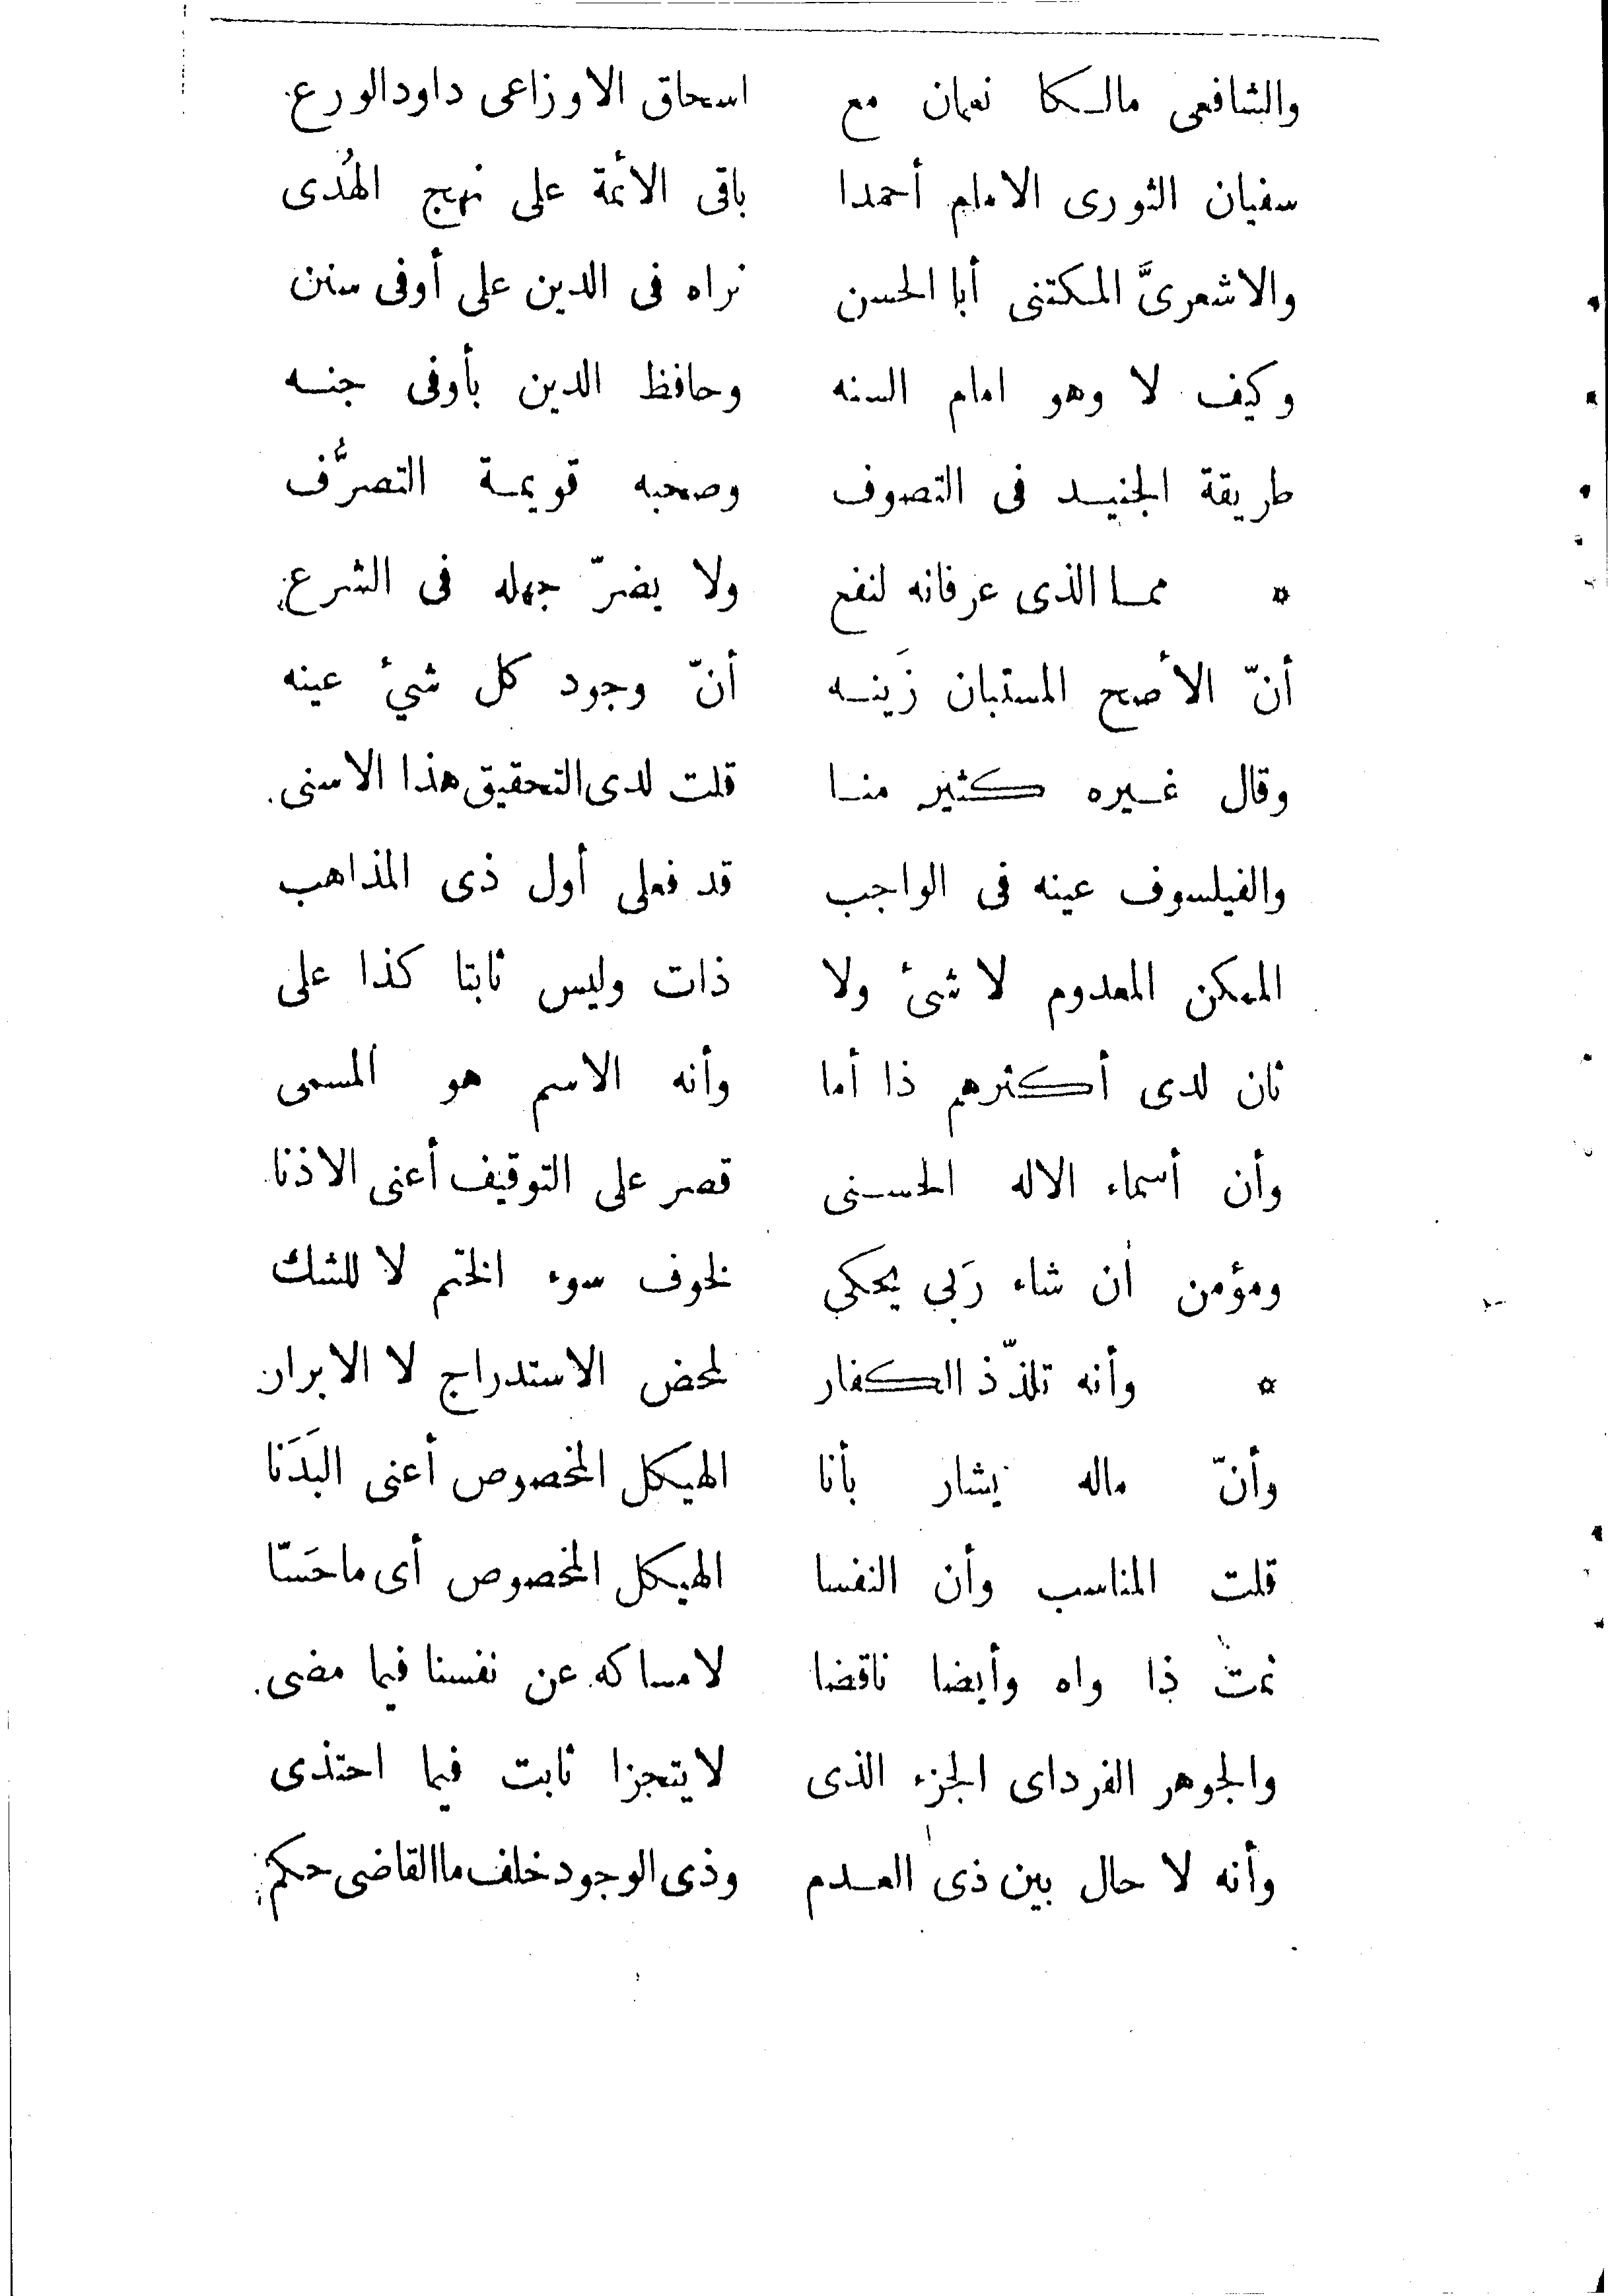 والشافعى مالكا نعمان مع اسحاق الاوزاعى داود الورع
سفيان الثورى الامام أحمدا باقى الأئمة على نهج الهُدى
والاشعرىَّ المكتنى أبا الحسن نراه فى الدين على أوفى سنن
وكيف لا وهو امام السنه وحافظ الدين بأوفى جنه
طريقة الجنيد فى التصوف وصحبه قويمة التصرُّف
* مما الذى عرفانه لنفع ولا يضرّ جهله فى الشرع
أنّ الأصح المستبان زَينه أنّ وجود كل شئ عينه
وقال غيره كثير منا قلت لدى التحقيق هذا الاسنى
والفيلسوف عينه فى الواجب قد فعلى أول ذى المذاهب
الممكن المعدوم لا شئ ولا ذات وليس ثابتا كذا على
ثان لدى أكثرهم ذا أما وأنه الاسم هو المسمى
وأن أسماء الاله الحسنى قصر على التوقيف أعنى الاذنا
ومؤمن ان شاء رَبى يحكى لخوف سوء الختم لا للشك
* وأنه تلذّذ الكفار لمحض الاستدراج لا الابرار
وأنّ ماله يشار بأنا الهيكل المخصوص أعنى البَدَنا
قلت المناسب وأن النفسا الهيكل المخصوص أى ما حَسّا
ثمت ذا واه وأيضا ناقضا لامساكه عن نفسنا فيما مضى
والجوهر الفرد اى الجزء الذى لا يتجزا ثابت فيما احتذى
وأنه لا حال بين ذى العدم وذى الوجود خلف ما القاضى حكم